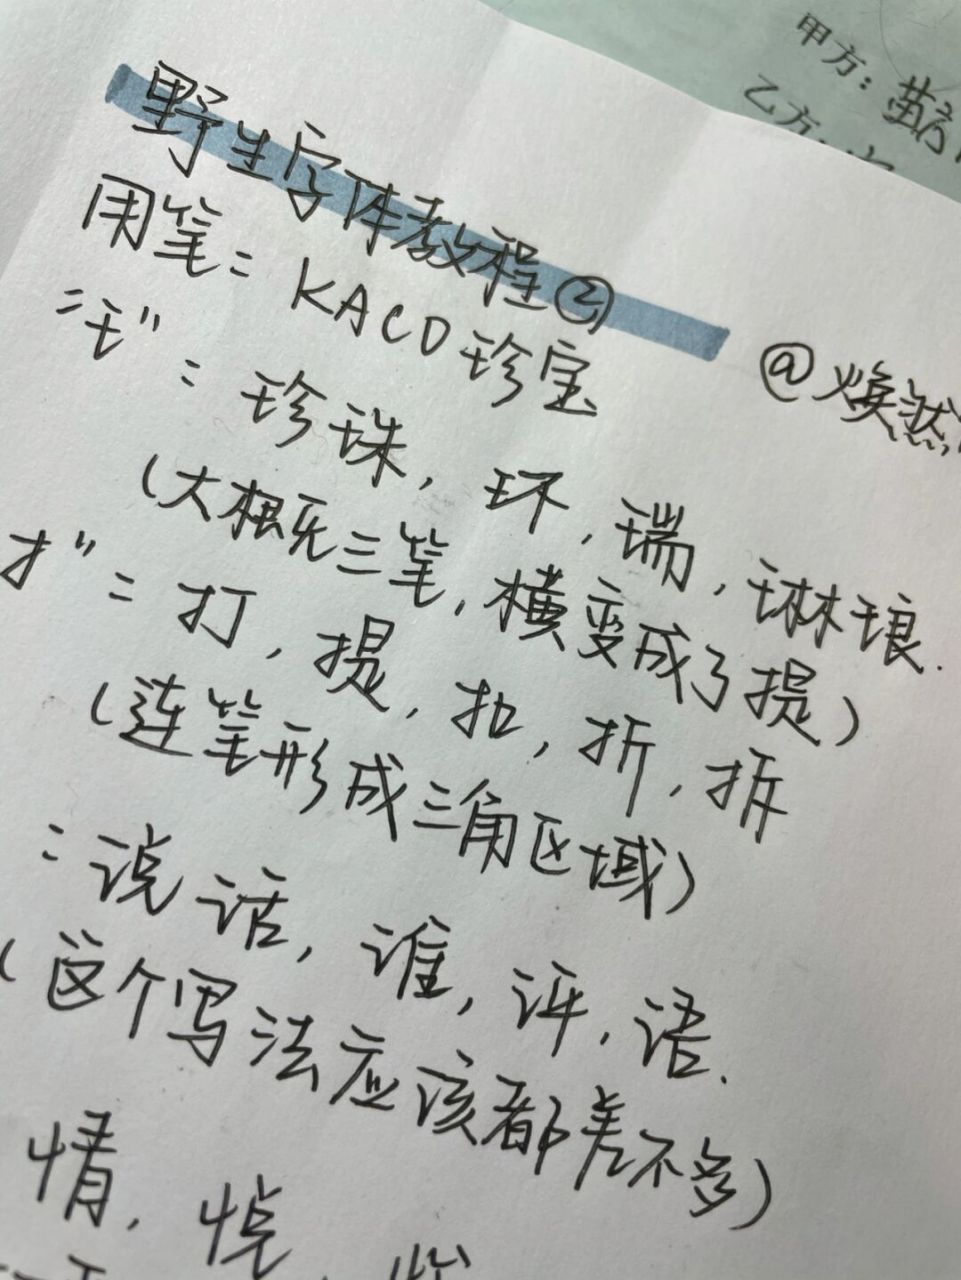 甲方：
乙方：
野生字体教程②
@焕然
用笔：KACO珍宝
"王"：珍珠，环，瑞，琳琅.
（大概无三笔，横变成了提）
扌"：打，提，扣，折，拆
（连笔形成三角区域）
：说话，谁，评，语.
（这个写法应该都差不多）
情，悦，